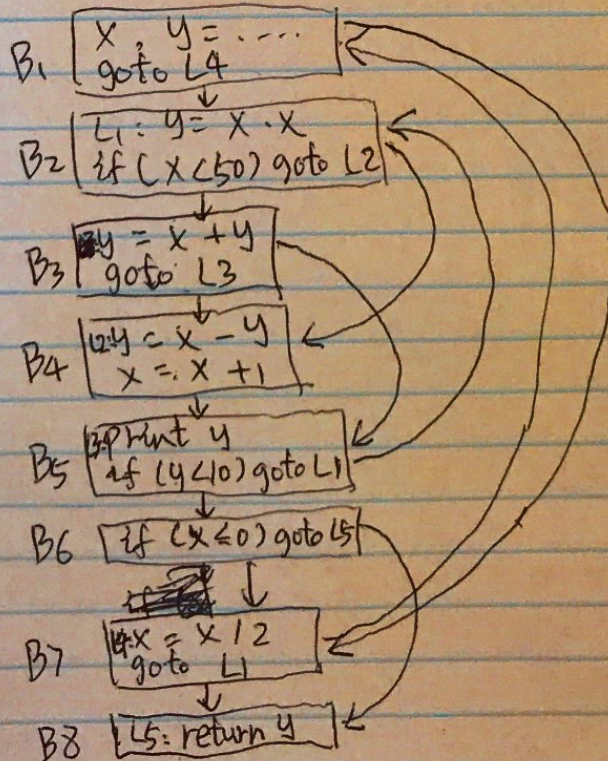 B1
x, y = ....
goto L4
B2
L1: y = x . x
if (x<50) goto L2
B3
y = x + y
goto L3
B4
L2: y = x - y
x = x + 1
B5
L3: print y
if (y<10) goto L1
B6
if (x≤0) goto L5
B7
L4: x = x / 2
goto L1
B8
L5: return y